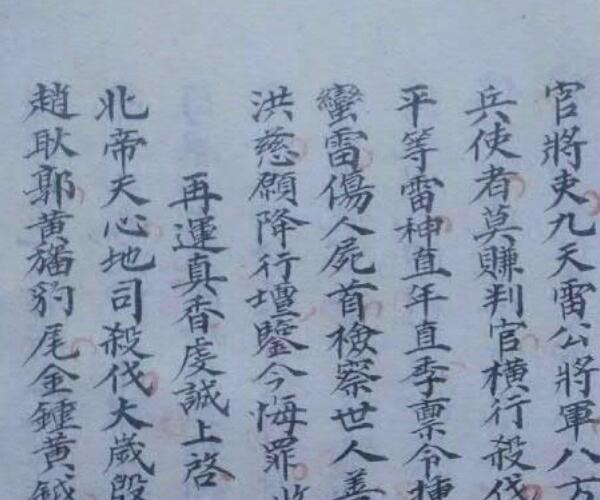 官將吏九天雷公將軍八方
兵使者莫賺判官橫行殺伐
平等雷神直年直季禀令揰
蠻雷傷人屍首檢察世人善
洪慈願降行壇鑒今悔罪
再運真香虔誠上啓
北帝天心地司殺伐大歲殷
趙耿郭黃旛豹尾金鍾黃鉞